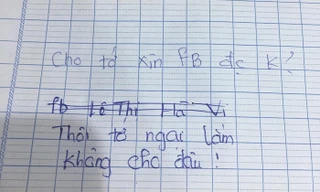 Cho tớ xin fB đc K?
fb Lê Thị Hà Vi
Thôi tớ ngại lắm
không cho đâu!